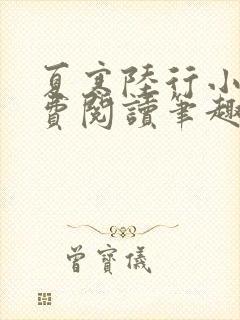 夏寒陸行小
費閱讀筆趣
曾寶儀